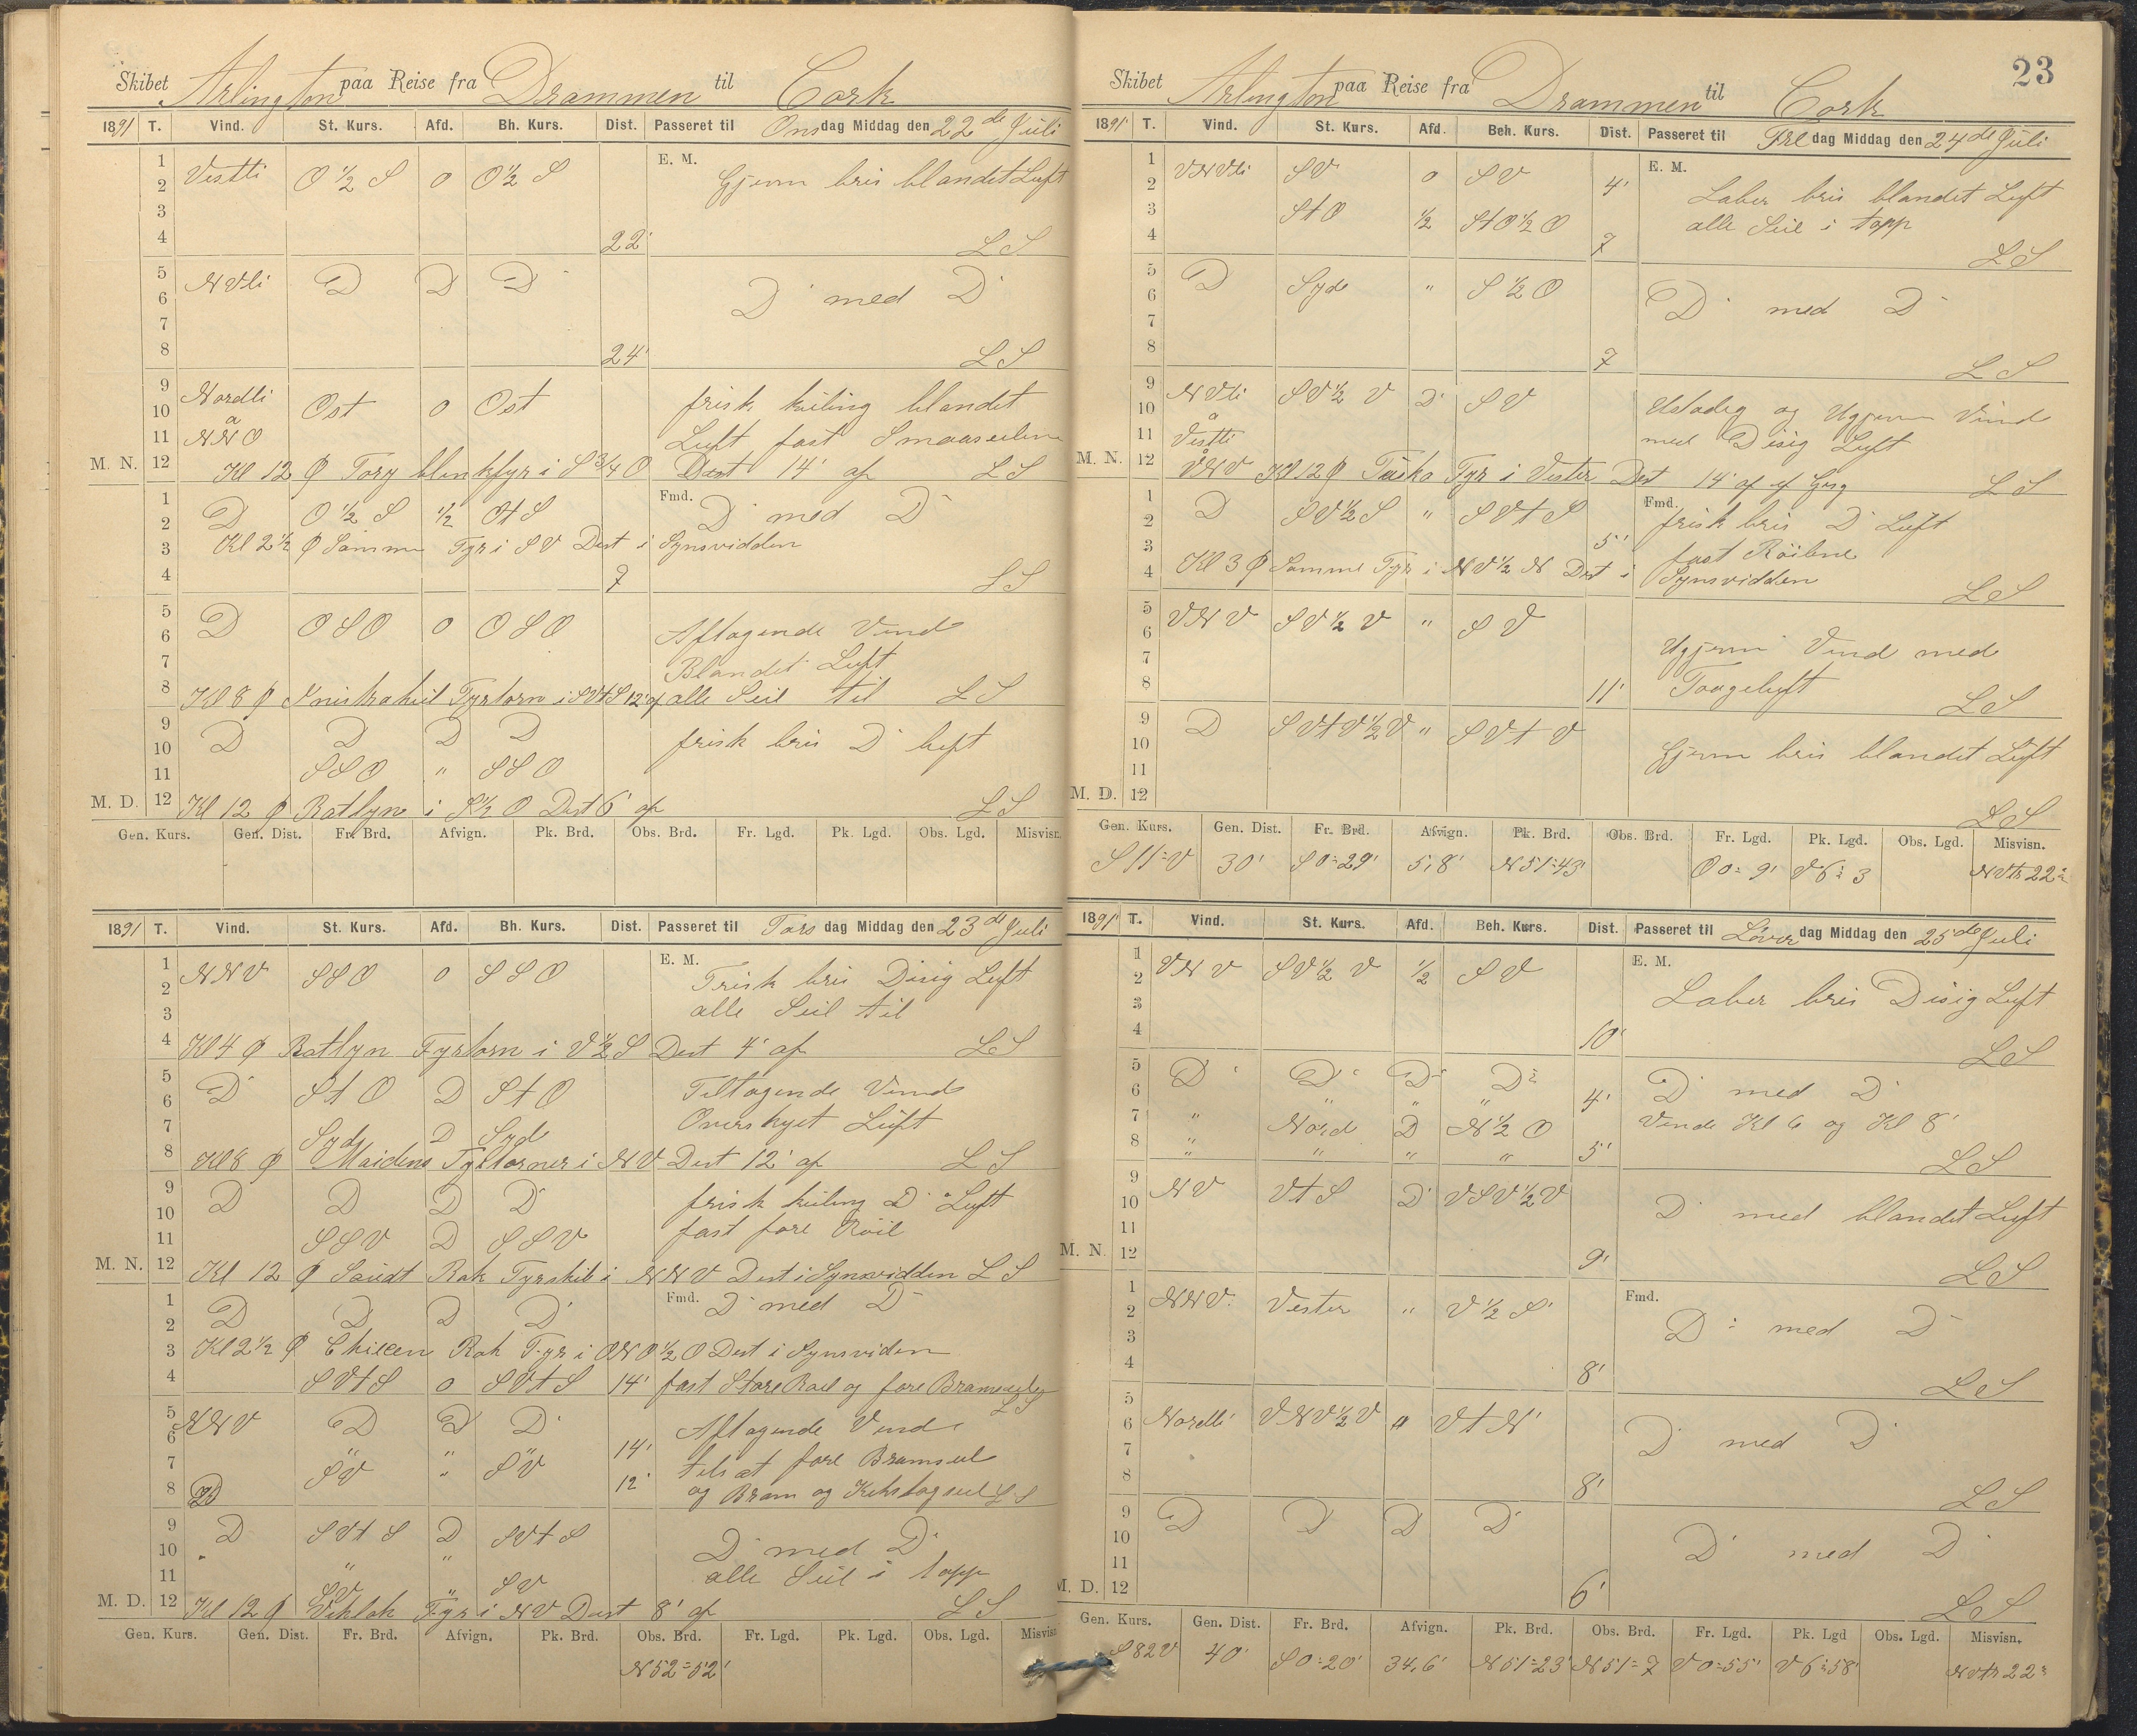 Skibet Arlington paa Reise fra Drammen til Cork
1891 T. Vind. St. Kurs. Afd. Bh. Kurs. Dist. Passeret til Onsdag Middag den 22de Juli
1 E. M.
2 Vestli O ½ S o O ½ S Gjenm bris blandet Luft
3
4 22' LS
5
6 NVli D D D D med D
7
8 24' LS
9 Nordli frisk kuling blandet
10 a Ost o Ost
11 NNO Luft fast Smaaseilene
M. N. 12 Kl 12 φ Tory blinkfyr i S ¾ O Dist 14' af LS
1 Fmd.
2 D O ½ S ½ OtS D med D
3 Kl 2½ φ Samme Fyr i SV Dist i Synsvidden
4 7 LS
5
6 D OSO o OSO Aftagende Vind
7 Blandet Luft
8 Kl 8 φ Fyrtorn i SVtS 12' af alle Seil til LS
9 D D D D frisk bris D luft
10
11 SSO " SSO
M. D. 12 Kl 12 φ Ratlyn i S½ O Dist 6' af LS
Gen. Kurs. Gen. Dist. Fr. Brd. Afvign. Pk. Brd. Obs. Brd. Fr. Lgd. Pk. Lgd. Obs. Lgd. Misvisn.
1891 T. Vind. St. Kurs. Afd. Bh. Kurs. Dist. Passeret til Torsdag Middag den 23de Juli
1 E. M.
2 NNV SSO o SSO Frisk bris Disig Luft
3 alle Seil til
4 Kl 4 φ Ratlyn Fyrtorn i V½ S Dist 4' af LS
5
6 D StO D StO Tiltagende Vind
7 Syd D Syd Overskyet Luft
8 Kl 8 φ Maidens Fyrtorner i NV Dist 12' af LS
9 D D D D frisk kuling D Luft
10 fast fore Röil
11 SSV D SSV
M. N. 12 Kl 12 φ Soudt Rok Fyrskib i NNV Dist i Synsvidden LS
1 Fmd.
2 D D D D D med D
3 Kl 2½ φ Rok Fyr i ONO ½ O Dist i Synsviden
4 SVtS o SVtS 14' fast Store Roil og fore Bramseil LS
5
6 NNV D D D 14' Aftagende Vind
7 SV " SV tilsat fore Bramseil
8 D 12' og Bram og LS
9
10 D SVtS D SVtS D med D
11 " " alle Seil i topp
M. D. 12 SV " SV
Kl 12 φ Fyr i NV Dist 8' af LS
Gen. Kurs. Gen. Dist. Fr. Brd. Afvign. Pk. Brd. Obs. Brd. Fr. Lgd. Pk. Lgd. Obs. Lgd. Misvisn.
N 52° 52'
23
Skibet Arlington paa Reise fra Drammen til Cork
1891 T. Vind. St. Kurs. Afd. Beh. Kurs. Dist. Passeret til Fredag Middag den 24de Juli
1 E. M.
2 VNVli SV o SV 4' Laber bris blandet Luft
3 StO ½ StO½ O alle Seil i topp
4 7 LS
5
6 D Syde " S ½ O D med D
7
8 7 LS
9 NVli SV½ V D SV Ustadig og Ugjenm Vind
10 a
11 Vestli med Disig Luft
M. N. 12 VNV Kl 12 φ Fyr i Vester Dist 14' af LS
1 Fmd.
2 D SV½ S " SVtS frisk bris D Luft
3 5' fast Röilene
4 Kl 3 φ Samme Fyr i NV½ N Dist i Synsvidden LS
5
6 VNV SV½ V " SV Ugjenm Vind med
7
8 11' Taageluft LS
9
10 D SVtV½V " SVtV Gjenm bris blandet Luft
11
M. D. 12 LS
Gen. Kurs. Gen. Dist. Fr. Brd. Afvign. Pk. Brd. Obs. Brd. Fr. Lgd. Pk. Lgd. Obs. Lgd. Misvisn.
S 11° V 30' S 0° 29' 5,8' N 51° 43' O 0° 9' V 6° 3 NVtr 22°
1891 T. Vind. St. Kurs. Afd. Beh. Kurs. Dist. Passeret til Löverdag Middag den 25de Juli
1 E. M.
2 VNV SV½ V ½ SV Laber bris Disig Luft
3
4 10' LS
5 D D D D
6 " " " 4' D med D
7 " Nord D N½ O Vende Kl 6 og Kl 8'
8 " " " " 5' LS
9
10 NV VtS D VSV½V D med blandet Luft
11
M. N. 12 9' LS
1 Fmd.
2 NNV. Vester " V ½ S D med D
3
4 8' LS
5
6 Nordli VNV½V " VtN D med D
7
8 8' LS
9 D D D D
10 D med D
11
M. D. 12 6' LS
Gen. Kurs. Gen. Dist. Fr. Brd. Afvign. Pk. Brd. Obs. Brd. Fr. Lgd. Pk. Lgd Obs. Lgd. Misvisn.
S 82 V 40' S 0° 20' 34,6' N 51° 23' N 51° 7 V 0° 55' V 6° 58' NVtr 22°